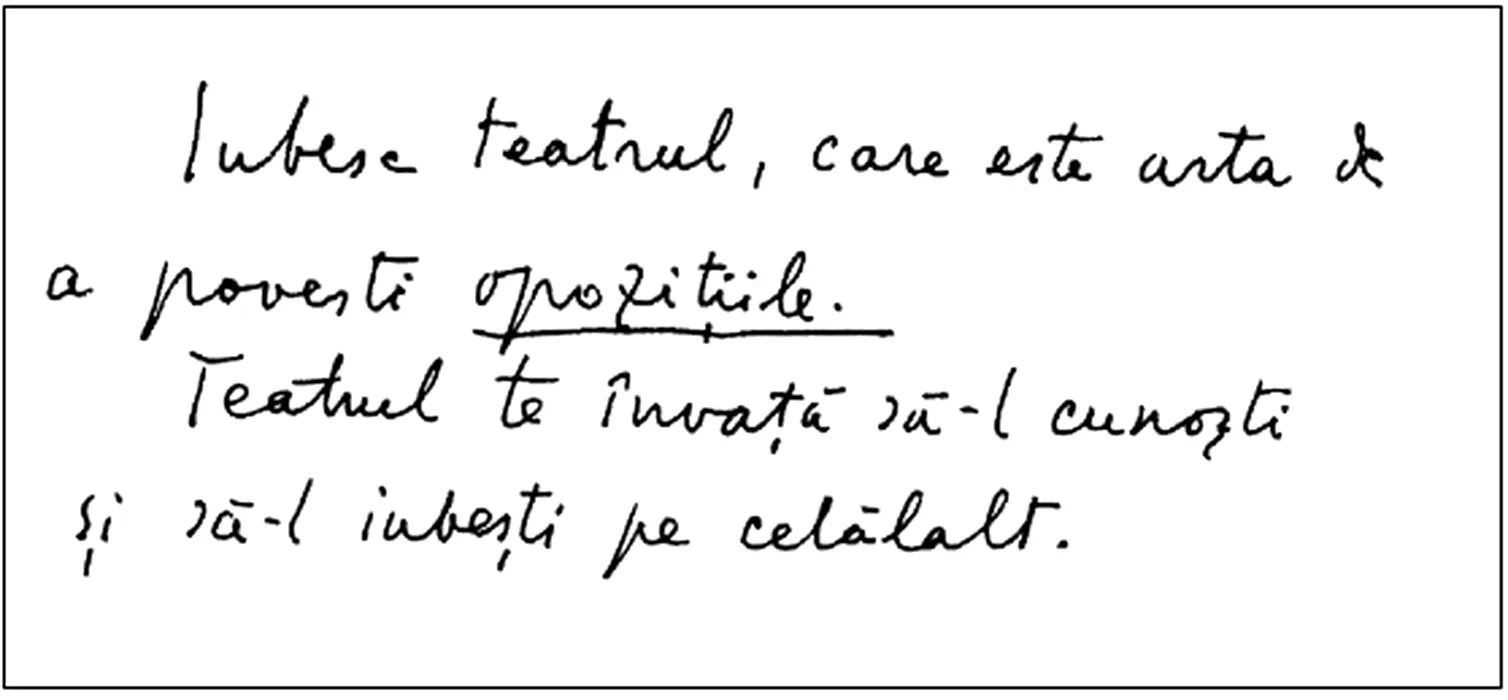 Iubesc teatrul, care este arta de
a povesti opozițiile.
Teatrul te învață să-l cunoști
și să-l iubești pe celălalt.